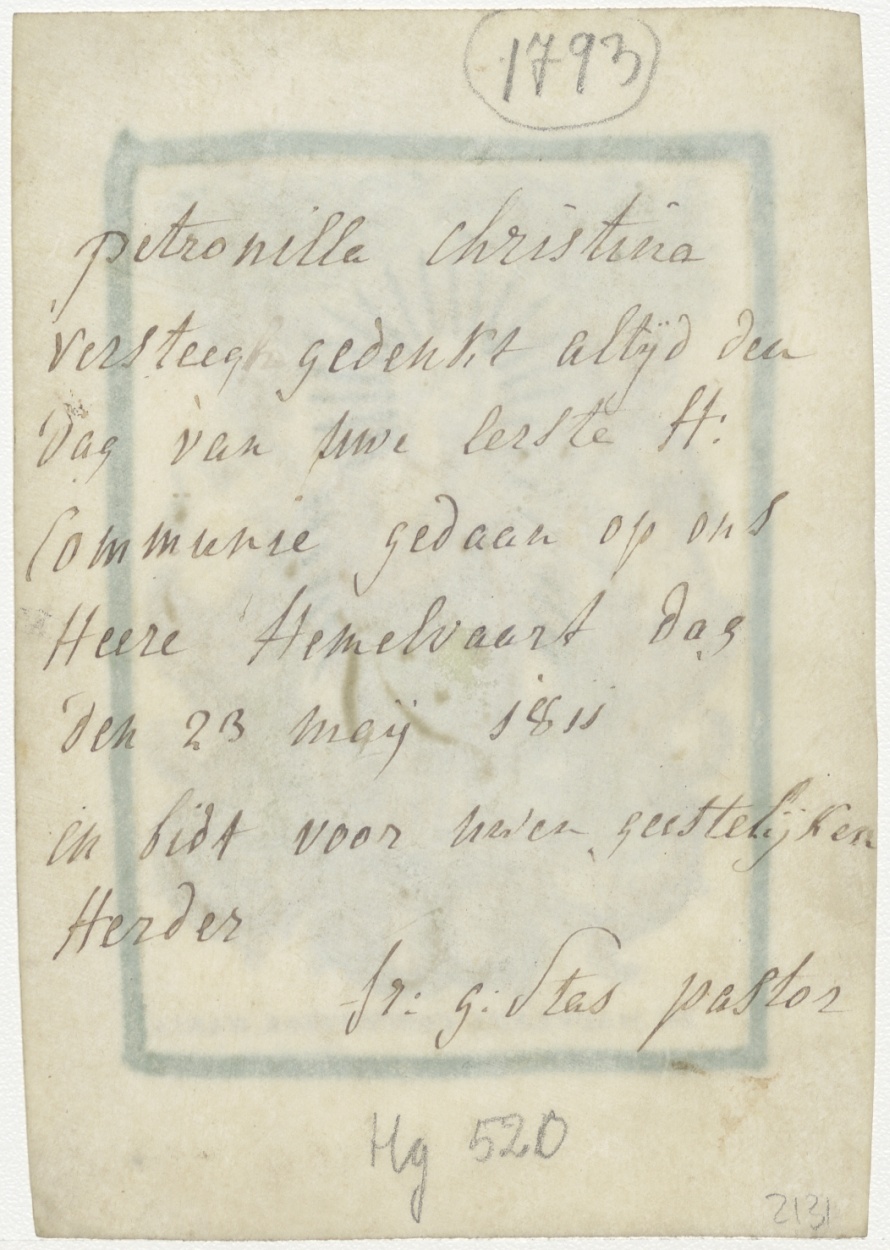 1793
petronilla Christina
versteegh gedenkt altÿd den
Dag van uwe Eerste H:
Communie gedaan op ons
Heere Hemelvaart Dag
Den 23 maÿ 1811
en bidt voor uwen geestelÿken
Herder
fr: g: Stas pastor
Hg 520
2131